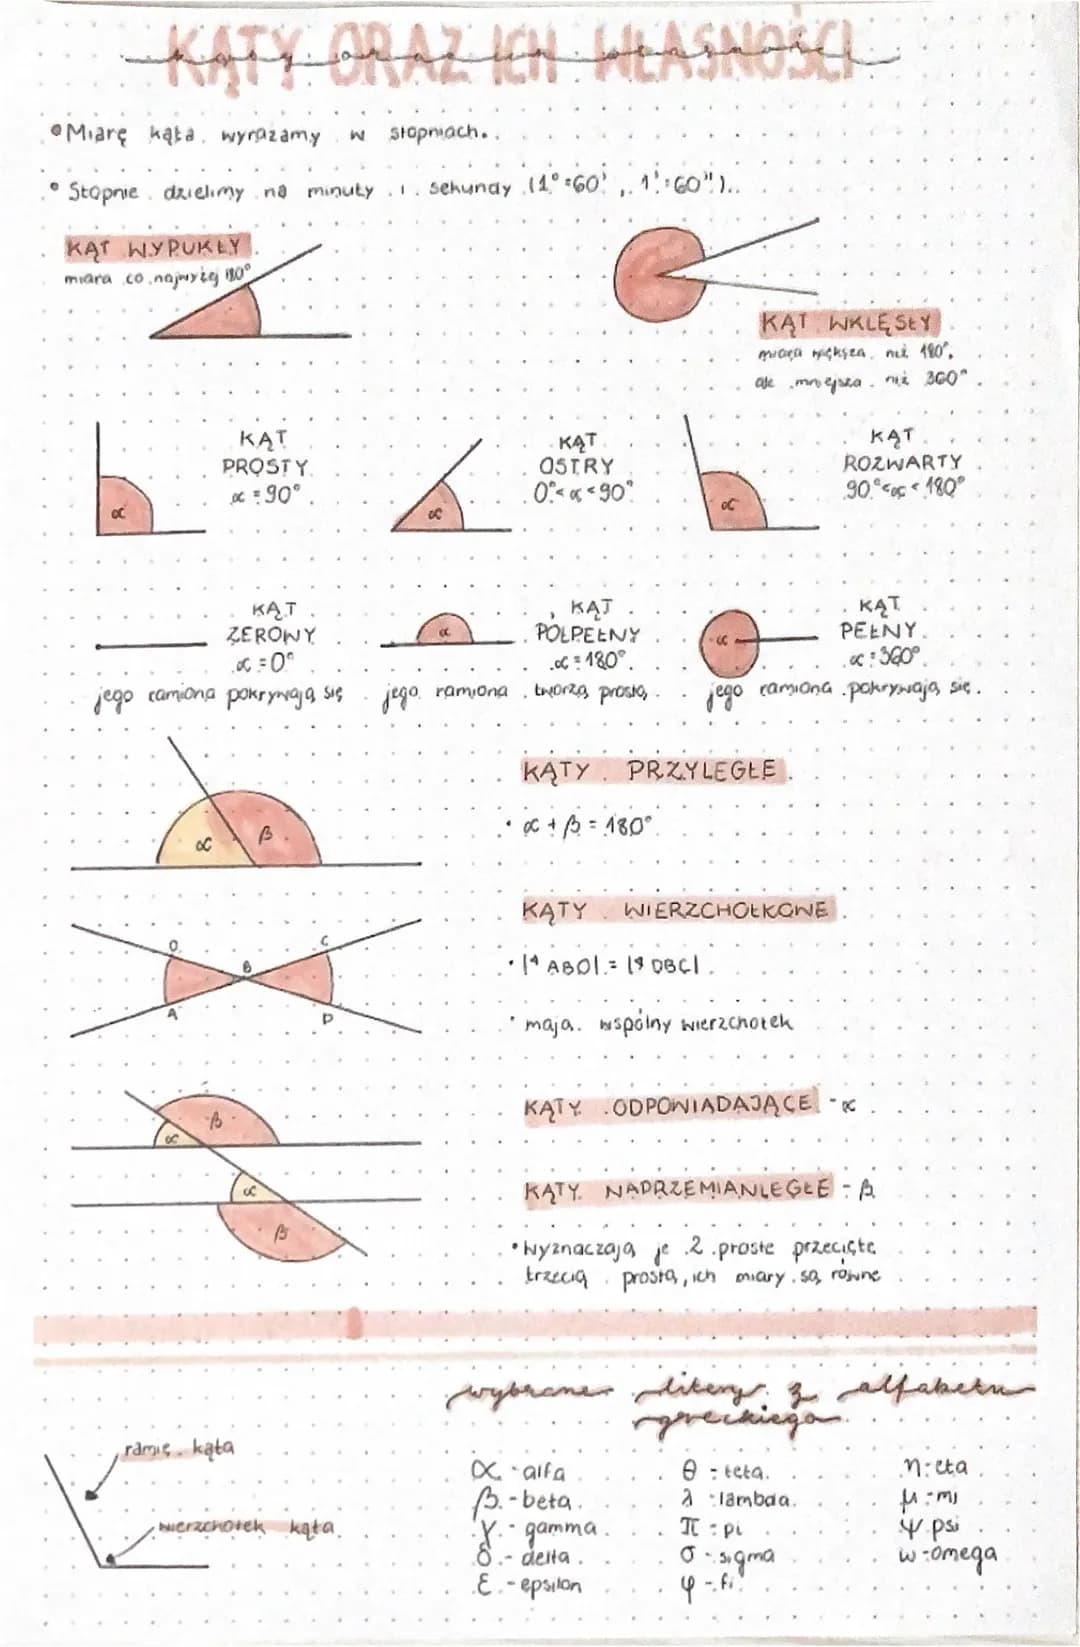 KĄTY ORAZ ICH WŁASNOŚCI
kąty oraz ich własności
• Miarę kąta wyrażamy w stopniach.
• Stopnie dzielimy na minuty i sekundy (1°=60', 1'=60").
KĄT WYPUKŁY
miara co najwyżej 180°
KĄT WKLĘSŁY
miara większa niż 180°,
ale mniejsza niż 360°
KĄT
PROSTY
α = 90°
α
KĄT
OSTRY
0°<α<90°
α
KĄT
ROZWARTY
90°<α<180°
α
KĄT
ZEROWY
α=0°
jego ramiona pokrywają się
KĄT
PÓŁPEŁNY
α=180°
α
jego ramiona tworzą prostą
KĄT
PEŁNY
α=360°
α
jego ramiona pokrywają się.
KĄTY PRZYLEGŁE
• α + β = 180°
α β
KĄTY WIERZCHOŁKOWE
• |∢ ABO| = |∢ DBC|
• mają wspólny wierzchołek
O C
B
A D
KĄTY ODPOWIADAJĄCE - α
KĄTY NADRZEMIANLEGŁE - β
• wyznaczają je 2 proste przecięte
trzecią prostą, ich miary są równe
β
α
α
β
ramię kąta
wierzchołek kąta
wybrane litery z alfabetu
greckiego
α - alfa
β - beta
γ - gamma
δ - delta
ε - epsilon
θ - teta
λ - lambda
π - pi
σ - sigma
φ - fi
η - eta
μ - mi
ψ psi
ω - omega